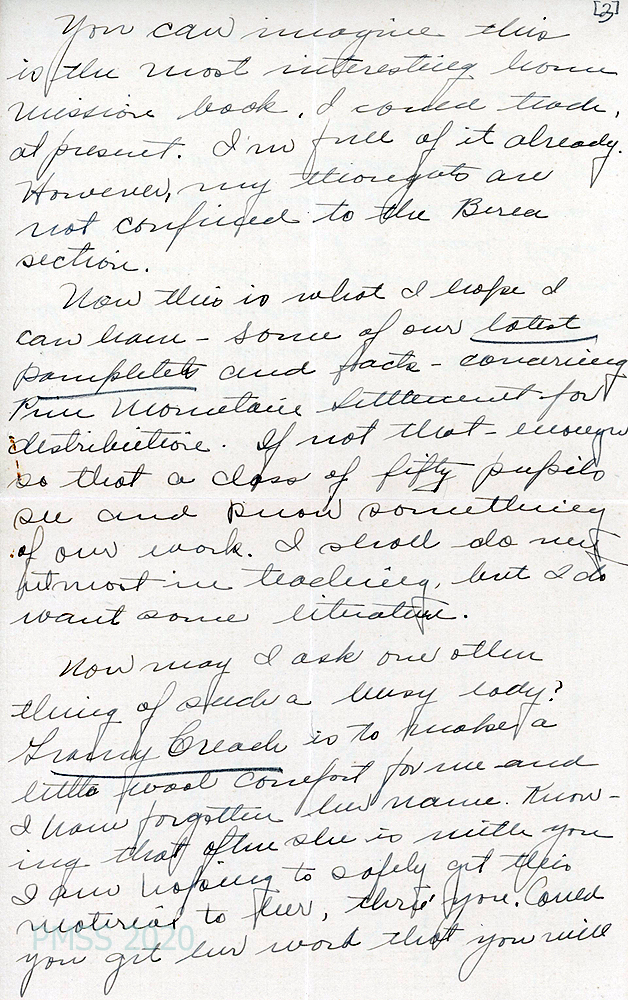 [3]
You can imagine this
is the most interesting home
mission book, I could teach,
at present. I'm full of it already.
However, my thoughts are
not confined to the Berea
section.
Now this is what I hope I
can have - some of our latest
pamplets and facts - concerning
Pine Mountain Settlement for
distribution. If not that - enough
so that a class of fifty pupils
see and know something
of our work. I shall do my
utmost in teaching, but I do
want some literature.
Now may I ask one other
thing of such a busy lady?
Granny Creach is to make a
little wool comfort for me and
I have forgotten her name. Know-
ing that often she is with you
I am hoping to safely get this
material to her, thru' you. Could
you get her word that you will
PMSS 2020